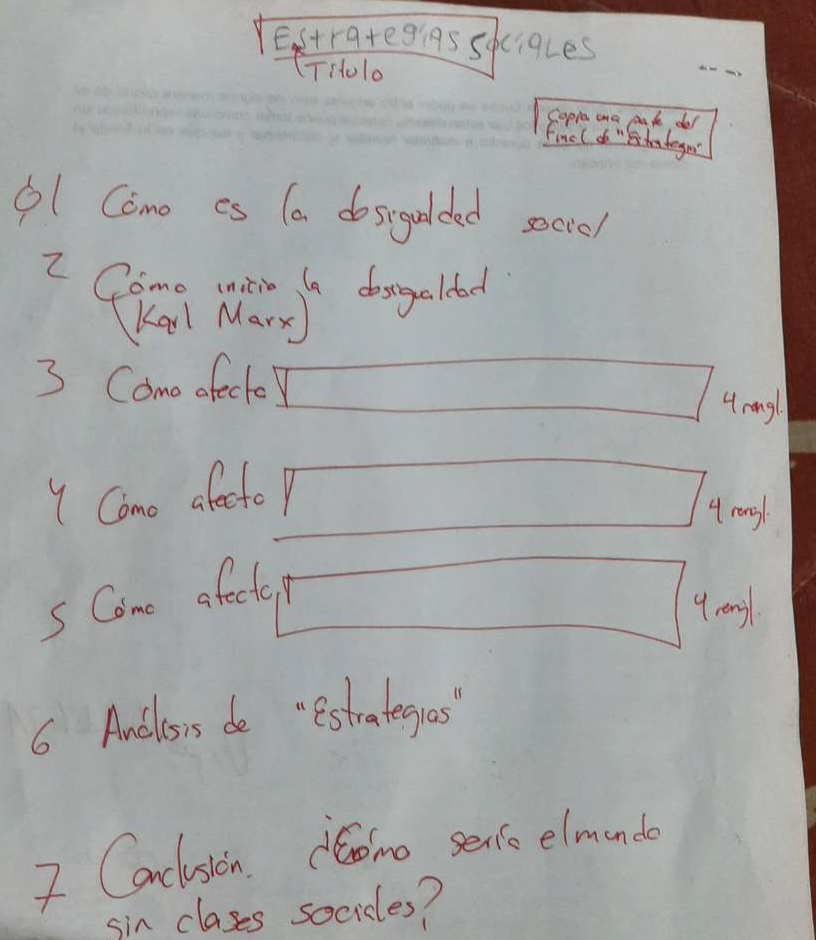 Estrategias sociales
Título
Copia una parte del
final de "Estrategia"
1 Cómo es la desigualdad social
2 Cómo inicio la desigualdad
(Karl Marx)
3 Cómo afecta
4 rengl.
4 Cómo afecta
4 rengl.
5 Cómo afecta
4 rengl.
6 Análisis de "Estrategias"
7 Conclusión. ¿Cómo sería el mundo
sin clases sociales?